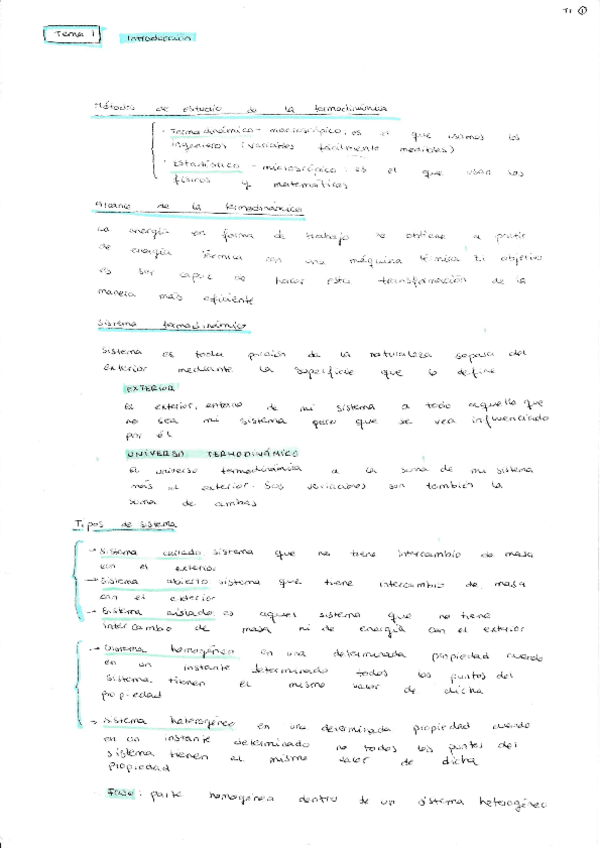 T1 ①
Tema 1 Introducción
Métodos de estudio de la termodinámica
· Termodinámico - macroscópico; es el que usamos los
ingenieros (variables fácilmente medibles)
· Estadístico - microscópico: es el que usan los
físicos y matemáticos
Alcance de la termodinámica
La energía en forma de trabajo se obtiene a partir
de energía térmica con una máquina térmica. El objetivo
es ser capaz de hacer esta transformación de la
manera más eficiente
Sistema termodinámico
Sistema es toda porción de la naturaleza separa del
exterior mediante la superficie que lo define
EXTERIOR
El exterior, entorno de mi sistema a todo aquello que
no sea mi sistema pero que se vea influenciado
por él
UNIVERSO TERMODINÁMICO
El universo termodinámico a la suma de mi sistema
más el exterior. Sus variaciones son también la
suma de ambas
Tipos de sistema
→ Sistema cerrado sistema que no tiene intercambio de masa
con el exterior
→ Sistema abierto sistema que tiene intercambio de masa
con el exterior
→ Sistema aislado es aquel sistema que no tiene
intercambio de masa ni de energía con el exterior
→ Sistema homogéneo en una determinada propiedad cuando
en un instante determinado todos los puntos del
sistema tienen el mismo valor de dicha
propiedad
→ Sistema heterogéneo en una determinada propiedad cuando
en un instante determinado no todos los puntos del
sistema tienen el mismo valor de dicha
propiedad
Fase: parte homogénea dentro de un sistema heterogéneo